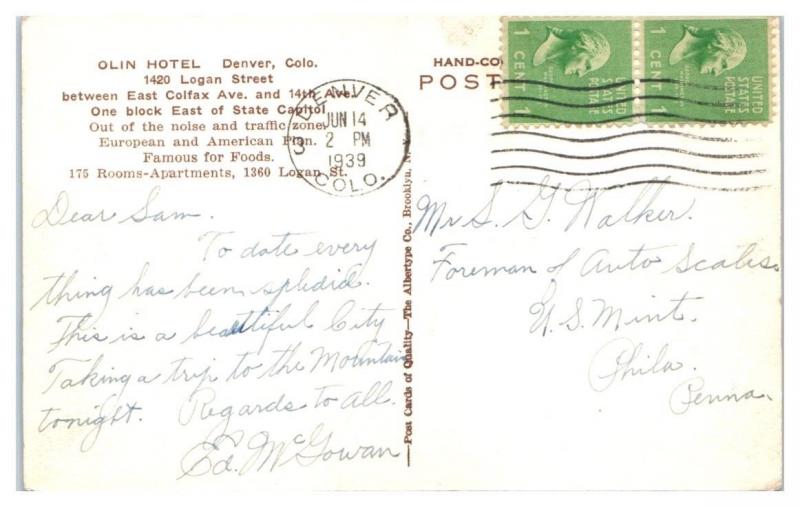 OLIN HOTEL Denver, Colo.
1420 Logan Street
between East Colfax Ave. and 14th Ave.
One block East of State Capitol
Out of the noise and traffic zone.
European and American Plan.
Famous for Foods.
175 Rooms-Apartments, 1360 Logan St.
DENVER
3
JUN 14
2 PM
1939
COLO.
HAND-CO
POST
1 CENT 1
UNITED
STATES
POSTAGE
1 CENT 1
UNITED
STATES
POSTAGE
Dear Sam.
To date every
thing has been splendid.
This is a beautiful City
Taking a trip to the Mountains
tonight. Regards to all.
Ed. McGowan
Post Cards of Quality—The Albertype Co., Brooklyn, N. Y.
Mr S. G. Walker.
Foreman of Auto Scales.
U.S. Mint.
Phila.
Penna.